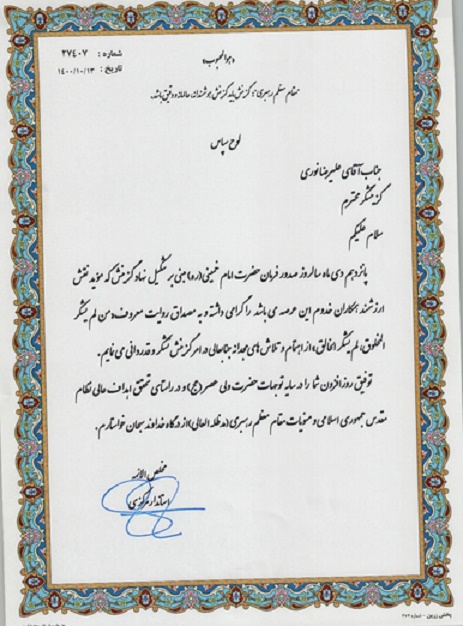 «هوالمحبوب»
شماره : ۳۷۴۰۷
تاریخ : ۱۴۰۰/۱۰/۱۳
مقام معظم رهبری: گزینش باید گزینش هوشمندانه، عالمانه و دقیق باشد.
لوح سپاس
جناب آقای علیرضا نوری
گزینشگر محترم
سلام علیکم
پانزدهم دی ماه سالروز صدور فرمان حضرت امام خمینی(ره) مبنی بر تشکیل نهاد گزینش که مؤید نقش
ارزشمند همکاران خدوم این عرصه می باشد را گرامی داشته و به مصداق روایت معروف «من لم یشکر
المخلوق، لم یشکر الخالق» از اهتمام و تلاش های مجدانه جنابعالی در امر گزینش تشکر و قدردانی می نمایم.
توفیق روزافزون شما را در سایه توجهات حضرت ولی عصر(عج) و در راستای تحقق اهداف عالی نظام
مقدس جمهوری اسلامی و منویات مقام معظم رهبری(مدظله العالی) از درگاه خداوند سبحان خواستارم.
استاندار مرکزی